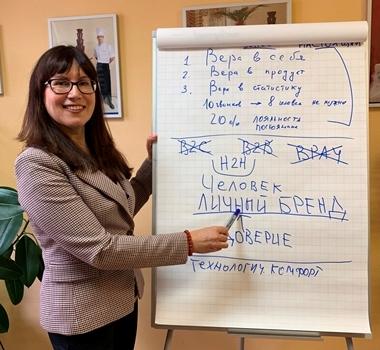 НАСТОЯЩИЙ
1 Вера в себя
2. Вера в продукт
3. Вера в статистику
10 звонков → 8 не нужно
20% лояльность
B2C B2B ВРАЧ
H2H
Человек
ЛИЧНЫЙ БРЕНД
ДОВЕРИЕ
ТЕХНОЛОГИЧ КОМФОРТ